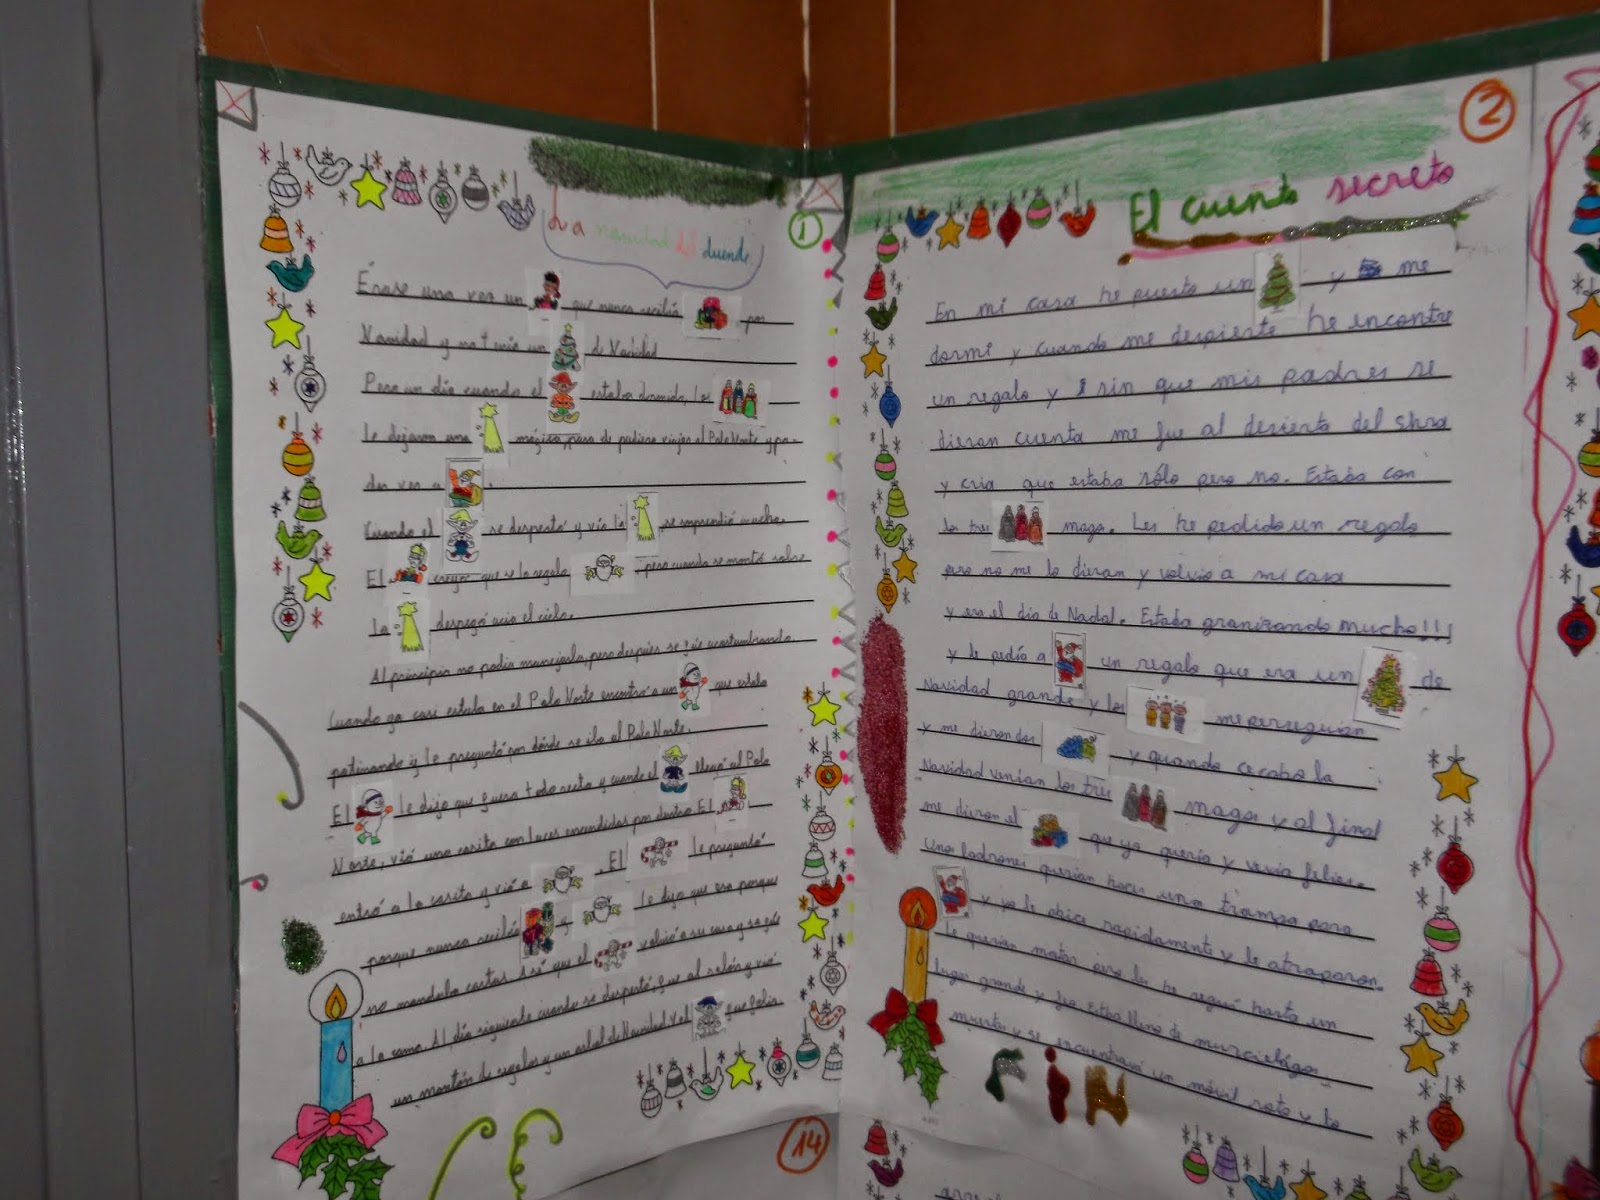 La navidad del duende
1
Érase una vez un que nunca recibió por
Navidad y no tenía un de Navidad
Pero un día cuando el estaba dormido, los
le dejaron una mágica, para de pudiera viajar al Polo Norte y po-
der ver a .
Cuando el se despertó y vio la se sorprendió mucho.
El creyó que se la regaló pero cuando se montó sobre
la despegó acia el cielo.
Al principio no podía manejarla, pero después se fue acostumbrando
Cuando ya casi estaba en el Polo Norte encontró a un que estaba
patinando y le preguntó por dónde se iba al Polo Norte.
El le dijo que fuera todo recto y cuando el llegó al Polo
Norte, vió una casita con luces encendidas por dentro El
entró a la casita y vió a . El le preguntó
porque nunca recibía y le dijo que era porque
no mandaba cartas. Así que el volvió a su casa y se fue
a la cama. Al día siguiente cuando se despertó, fue al salón y vió
un montón de regalos y un arbol de Navidad. Y el fue feliz.
14
2
El cuento secreto
En mi casa he puesto un y me
dormí y cuando me desperte he encontre
un regalo y sin que mis padres se
dieran cuenta me fue al desierto del shra
y cria que estaba sólo pero no. Estaba con
los tres magos. Les he pedido un regalo
pero no me lo dieran y volvio a mi casa
y era el dia de Nadal. Estaba granizando mucho!!!
y le pedía a un regalo que era un de
Navidad grande y los me perseguian
y me dieron dos y quando cecaba la
Navidad venían los tres magos y al final
me dieron el que yo quería y vevia felices.
Unos ladrones querían hacer una trampa para
y yo le abice rapidamente y le atraparon.
le querian matar pero le he seguí hasta un
lugar grande y feo Estaba lleno de murcielagos
muertos y se encuentraví un móvil roto y lo
FiN